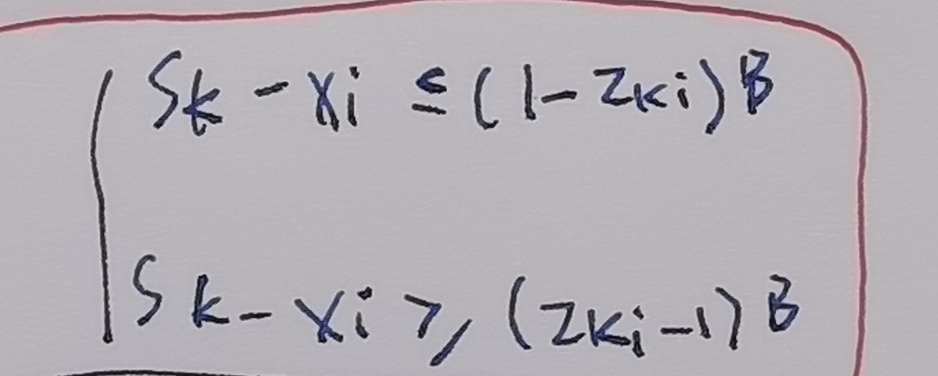 Sk - xi ≤ (1 - Zki) B
Sk - xi ≥ (Zki - 1) B